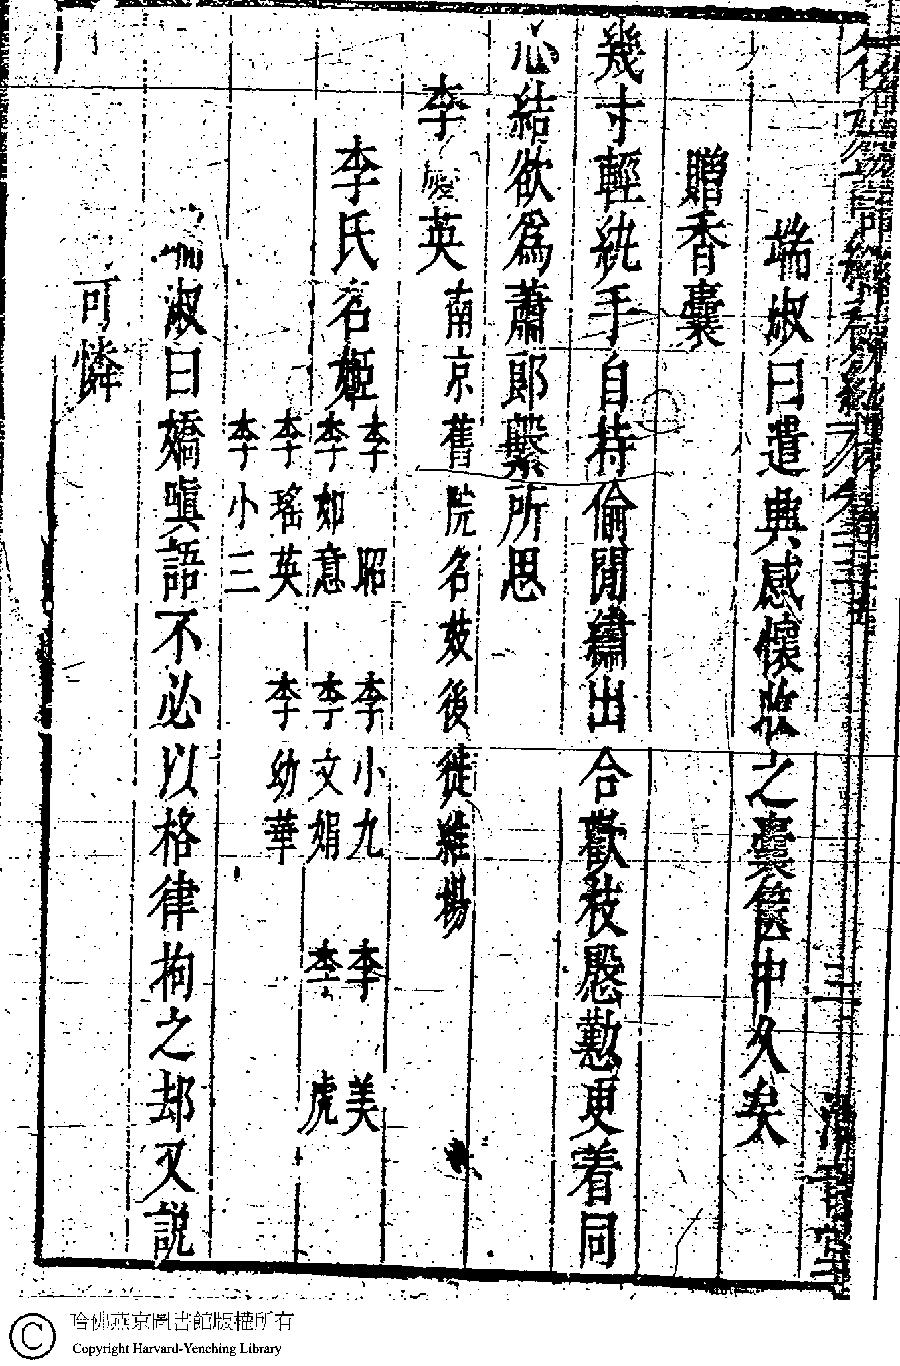 端淑曰遣典感懷收之囊篋中久矣
贈香囊
幾寸輕紈手自持偷閒繡出合歡枝慇懃更着同
心結欲爲蕭郎繫所思
李 英 南京舊院名妓後徙維揚
李氏名姬
李 昭 李小九 李 美
李如意 李文娟 李 虎
李瑤英 李幼華
李小三
端淑曰嬌嗔語不必以格律拘之却又説
可憐
哈佛燕京圖書館版權所有
Copyright Harvard-Yenching Library